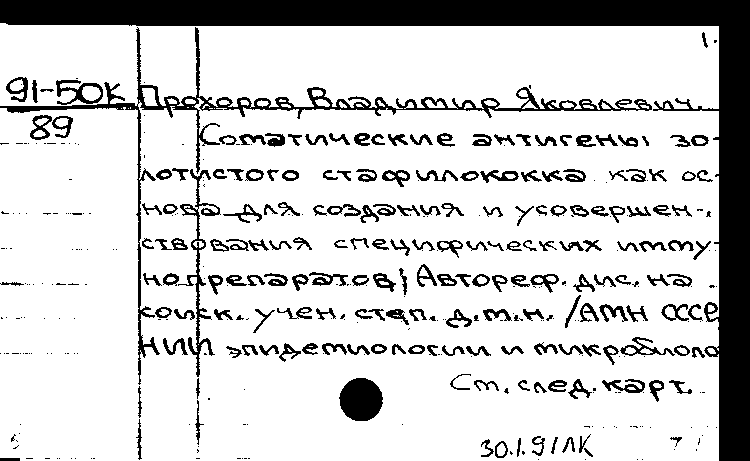 1.
91-50К Прохоров, Владимир Яковлевич.
89
Соматические антигены зо-
лотистого стафилококка как ос-
нова для создания и усовершен-
ствования специфических имму-
нопрепаратов: Автореф. дис. на
соиск. учен. степ. д.м.н. /АМН СССР
НИИ эпидемиологии и микробиоло
См. след. карт.
30.1.91 ЛК